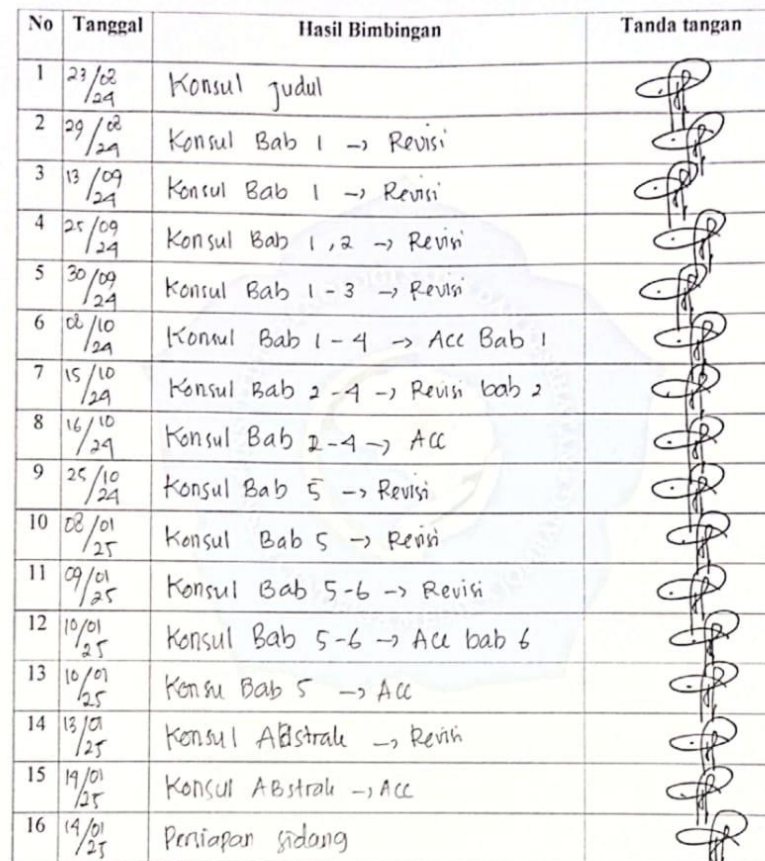 No Tanggal Hasil Bimbingan Tanda tangan
1 23/02/24 Konsul judul
2 29/02/24 Konsul Bab 1 → Revisi
3 13/09/24 Konsul Bab 1 → Revisi
4 25/09/24 Konsul Bab 1,2 → Revisi
5 30/09/24 Konsul Bab 1-3 → Revisi
6 08/10/24 Konsul Bab 1-4 → Acc Bab 1
7 15/10/24 Konsul Bab 2-4 → Revisi bab 2
8 16/10/24 Konsul Bab 2-4 → Acc
9 25/10/24 Konsul Bab 5 → Revisi
10 08/01/25 Konsul Bab 5 → Revisi
11 09/01/25 Konsul Bab 5-6 → Revisi
12 10/01/25 Konsul Bab 5-6 → Acc bab 6
13 10/01/25 Konsu Bab 5 → Acc
14 13/01/25 Konsul ABstrak → Revisi
15 14/01/25 Konsul ABstrak → Acc
16 14/01/25 Persiapan sidang